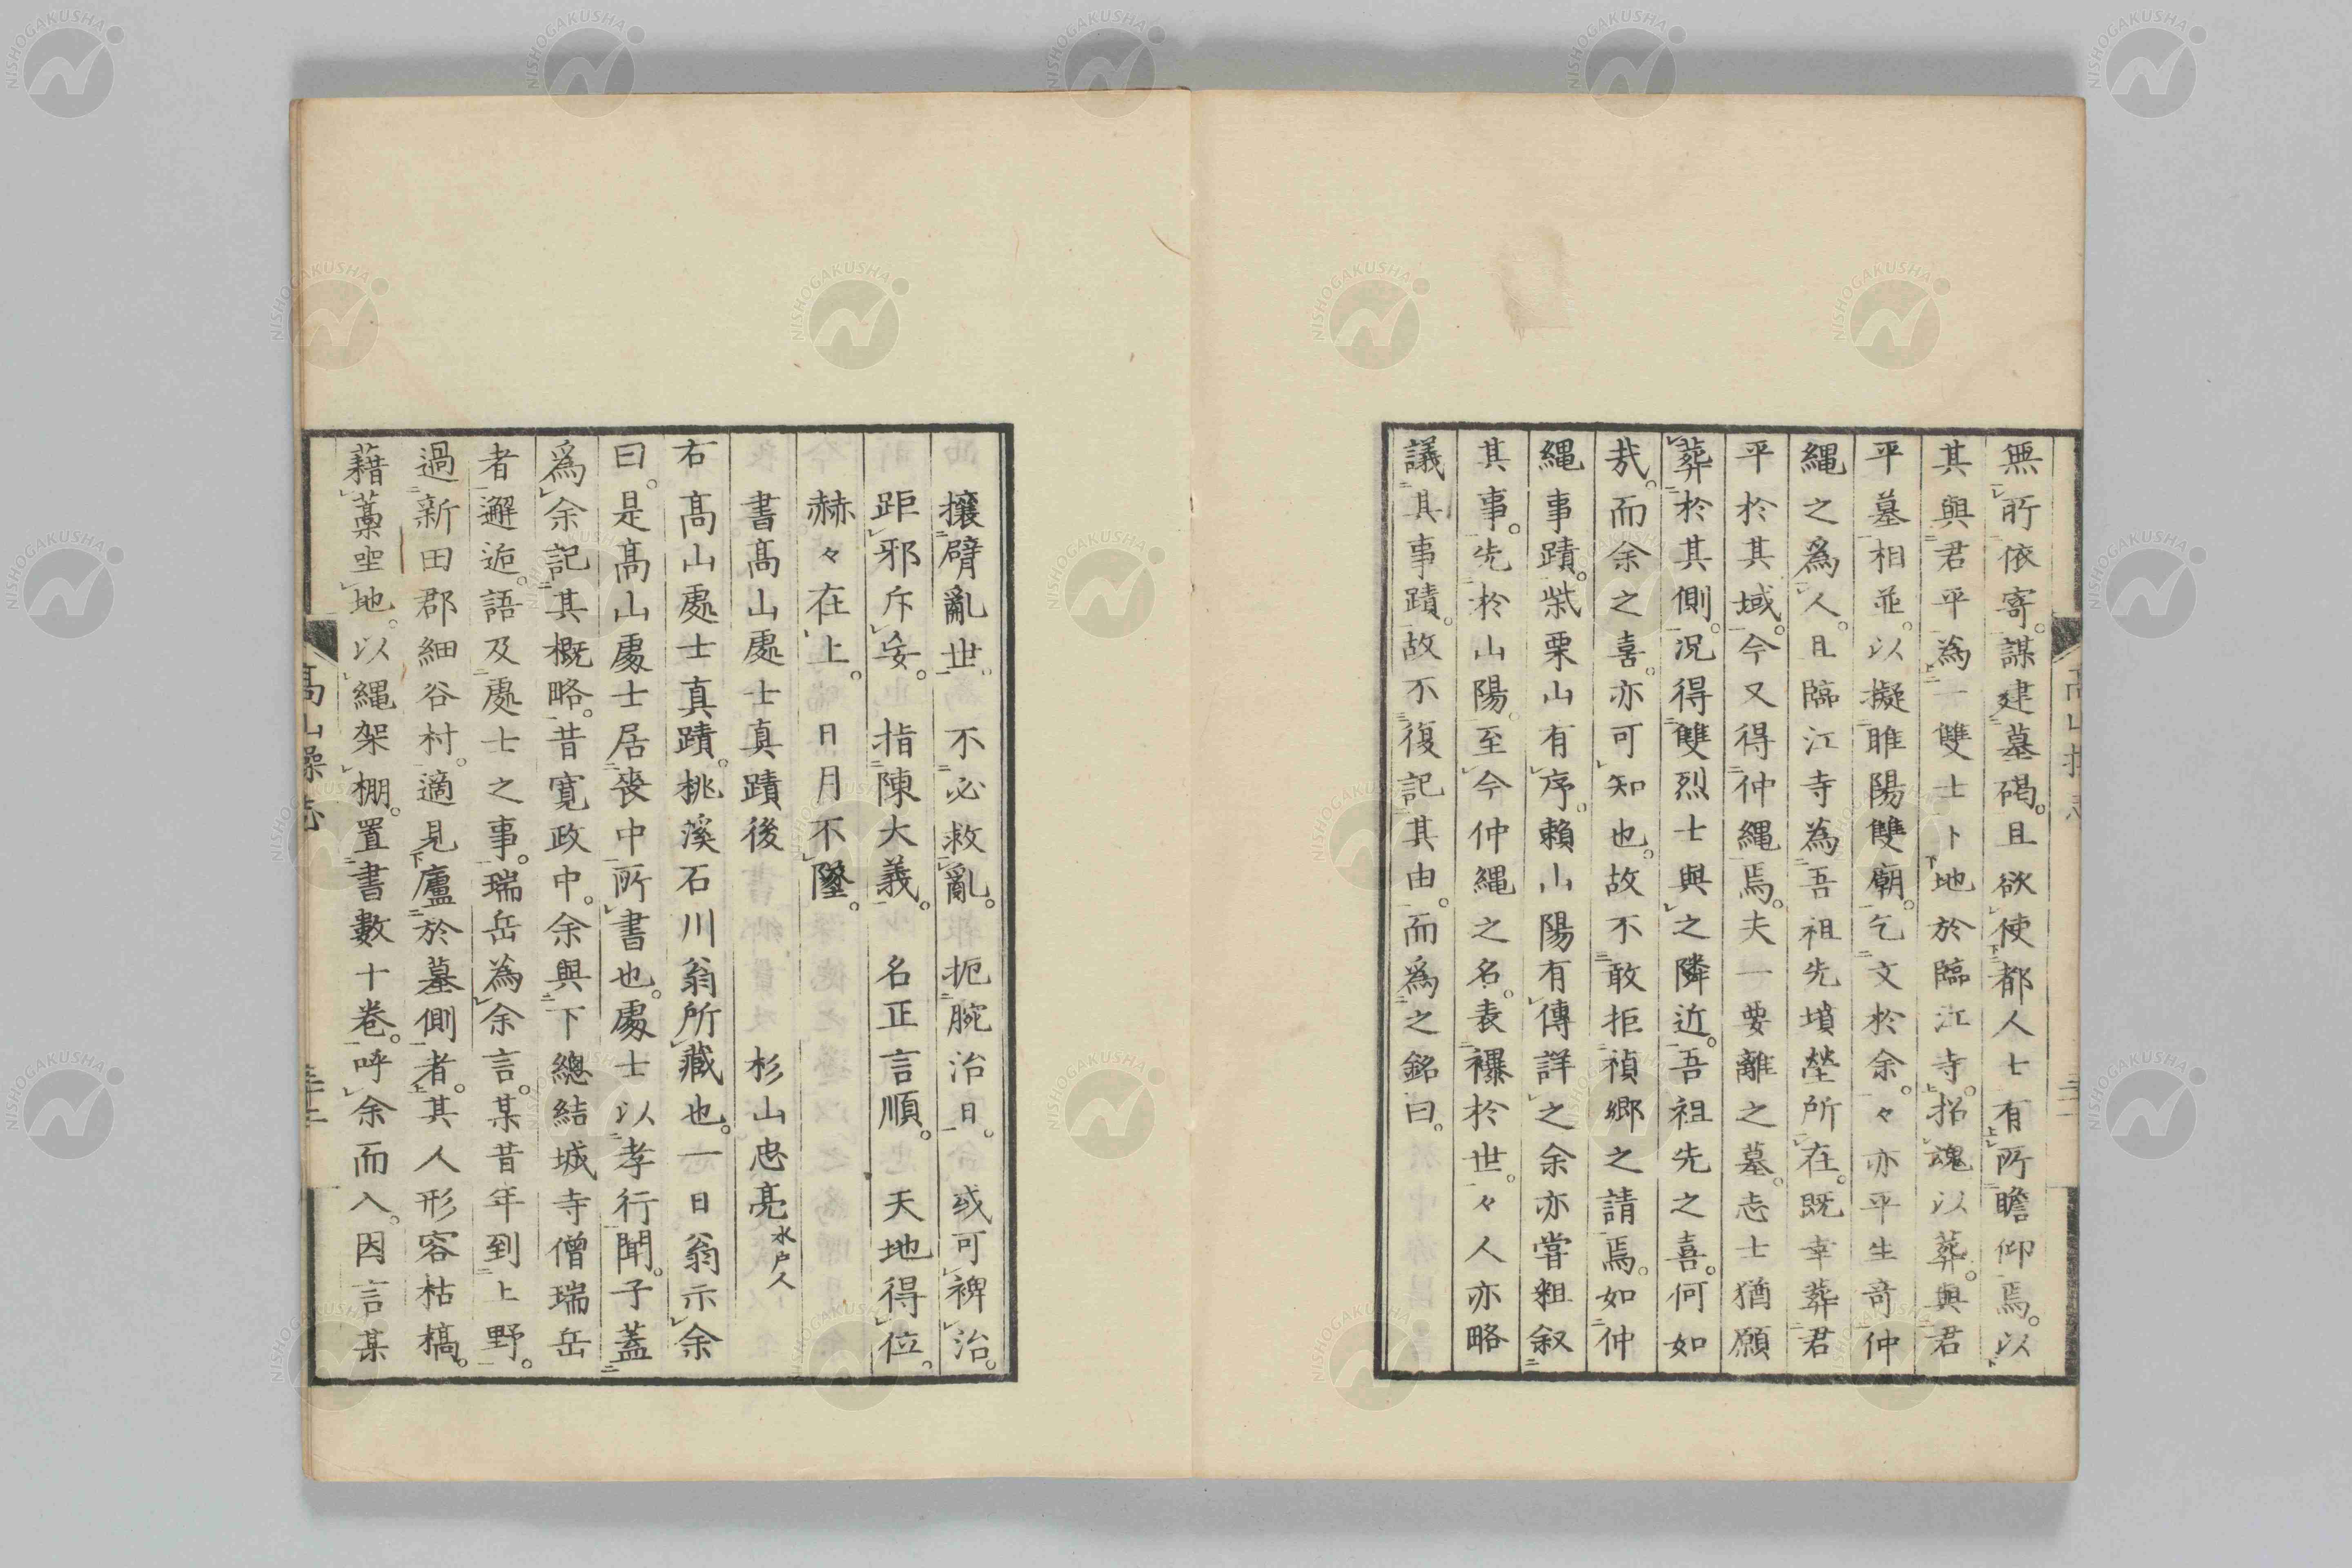 無所依寄。謀建墓碣。且欲使都人士有所瞻仰焉。以
其與君平為一雙士卜地於臨江寺。招魂以葬。與君
平墓相並。以擬睢陽雙廟。乞文於余。々亦平生奇仲
繩之爲人。且臨江寺為吾祖先墳塋所在。既幸葬君
平於其域。今又得仲繩焉。夫一要離之墓。志士猶願
葬於其側。況得雙烈士與之隣近。吾祖先之喜。何如
哉。而余之喜。亦可知也。故不敢拒禎郷之請焉。如仲
繩事蹟。柴栗山有序。賴山陽有傳詳之余亦嘗粗叙
其事。先於山陽。至今仲繩之名。表襮於世。々人亦略
議其事蹟。故不復記其由。而爲之銘曰。
攘臂亂世 不必救亂。扼腕治日。或可裨治。
距邪斥妄。指陳大義。名正言順。天地得位。
赫々在上。日月不墜。
書髙山處士真蹟後 杉山忠亮水戸人
右髙山處士真蹟。桃溪石川翁所藏也。一日翁示余
曰。是髙山處士居喪中所書也。處士以孝行聞。子蓋
爲余記其概略。昔寛政中。余與下總結城寺僧瑞岳
者邂逅。語及處士之事。瑞岳為余言。某昔年到上野。
過新田郡細谷村。適見廬於墓側者。其人形容枯槁。
藉藁坐地。以繩架棚。置書數十巻。呼余而入。因言某
髙山操志